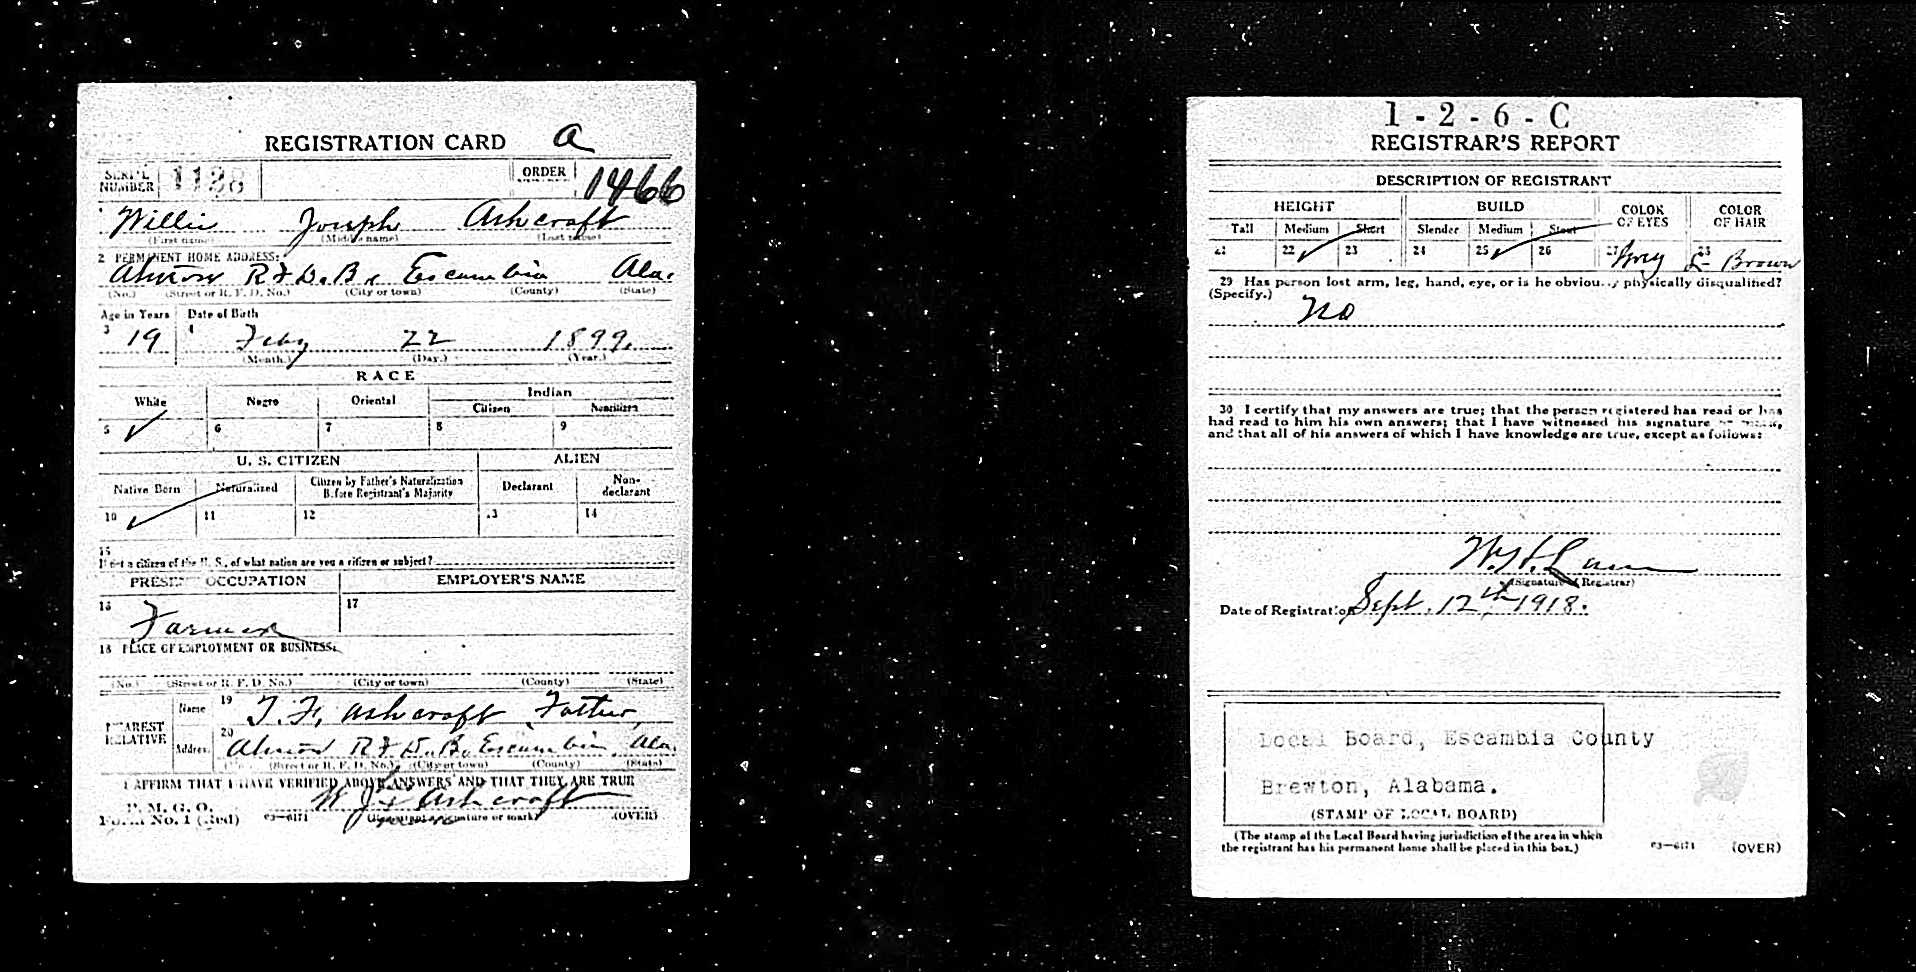 REGISTRATION CARD a
SERIAL NUMBER 1128 ORDER 1466
1 Willie Joseph Ashcraft
(First name) (Middle name) (Last name)
2 PERMANENT HOME ADDRESS:
R F D. B. Escambia Ala.
(No.) (Street or R. F. D. No.) (City or town) (County) (State)
Age in Years Date of Birth
3 19 4 Feby 22 1899.
(Month.) (Day.) (Year.)
RACE
White Negro Oriental Indian
Citizen Noncitizen
5 ✓ 6 7 8 9
U. S. CITIZEN ALIEN
Native Born Naturalized Citizen by Father's Naturalization Before Registrant's Majority Declarant Non-declarant
10 ✓ 11 12 13 14
15
If not a citizen of the U. S., of what nation are you a citizen or subject?
PRESENT OCCUPATION EMPLOYER'S NAME
16 Farmer 17
18 PLACE OF EMPLOYMENT OR BUSINESS:
(No.) (Street or R. F. D. No.) (City or town) (County) (State)
NEAREST RELATIVE
Name 19 T. F. Ashcraft Father,
Address 20 R F D. B. Escambia, Ala.
(No.) (Street or R. F. D. No.) (City or town) (County) (State)
I AFFIRM THAT I HAVE VERIFIED ABOVE ANSWERS AND THAT THEY ARE TRUE
P. M. G. O.
Form No. 1 (Red) 03—6171 W J x Ashcraft
(Registrant's signature or mark) (OVER)
1-2-6-C
REGISTRAR'S REPORT
DESCRIPTION OF REGISTRANT
HEIGHT BUILD COLOR OF EYES COLOR OF HAIR
Tall Medium Short Slender Medium Stout
21 22 ✓ 23 24 25 ✓ 26 27 Grey 28 L- Brown
29 Has person lost arm, leg, hand, eye, or is he obviously physically disqualified?
(Specify.) No
30 I certify that my answers are true; that the person registered has read or has
had read to him his own answers; that I have witnessed his signature or mark,
and that all of his answers of which I have knowledge are true, except as follows:
W. H.
(Signature of Registrar)
Date of Registration Sept. 12th, 1918.
Local Board, Escambia County
Brewton, Alabama.
(STAMP OF LOCAL BOARD)
(The stamp of the Local Board having jurisdiction of the area in which
the registrant has his permanent home shall be placed in this box.)
03—6171 (OVER)